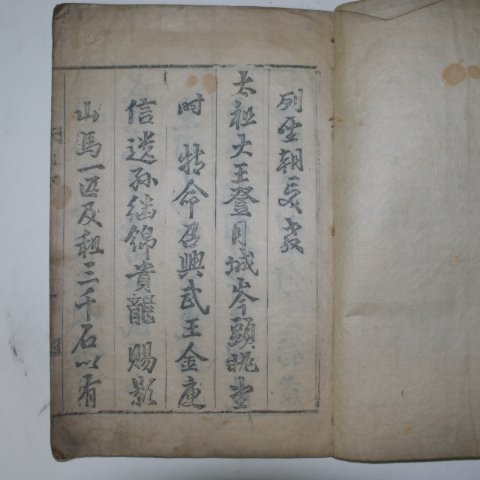 列聖朝受教
太祖大王登月城岑頭眺望
時 特命召興武王金庾
信遠孫継錦貴龍 賜影
山馬一匹及租三千石以有